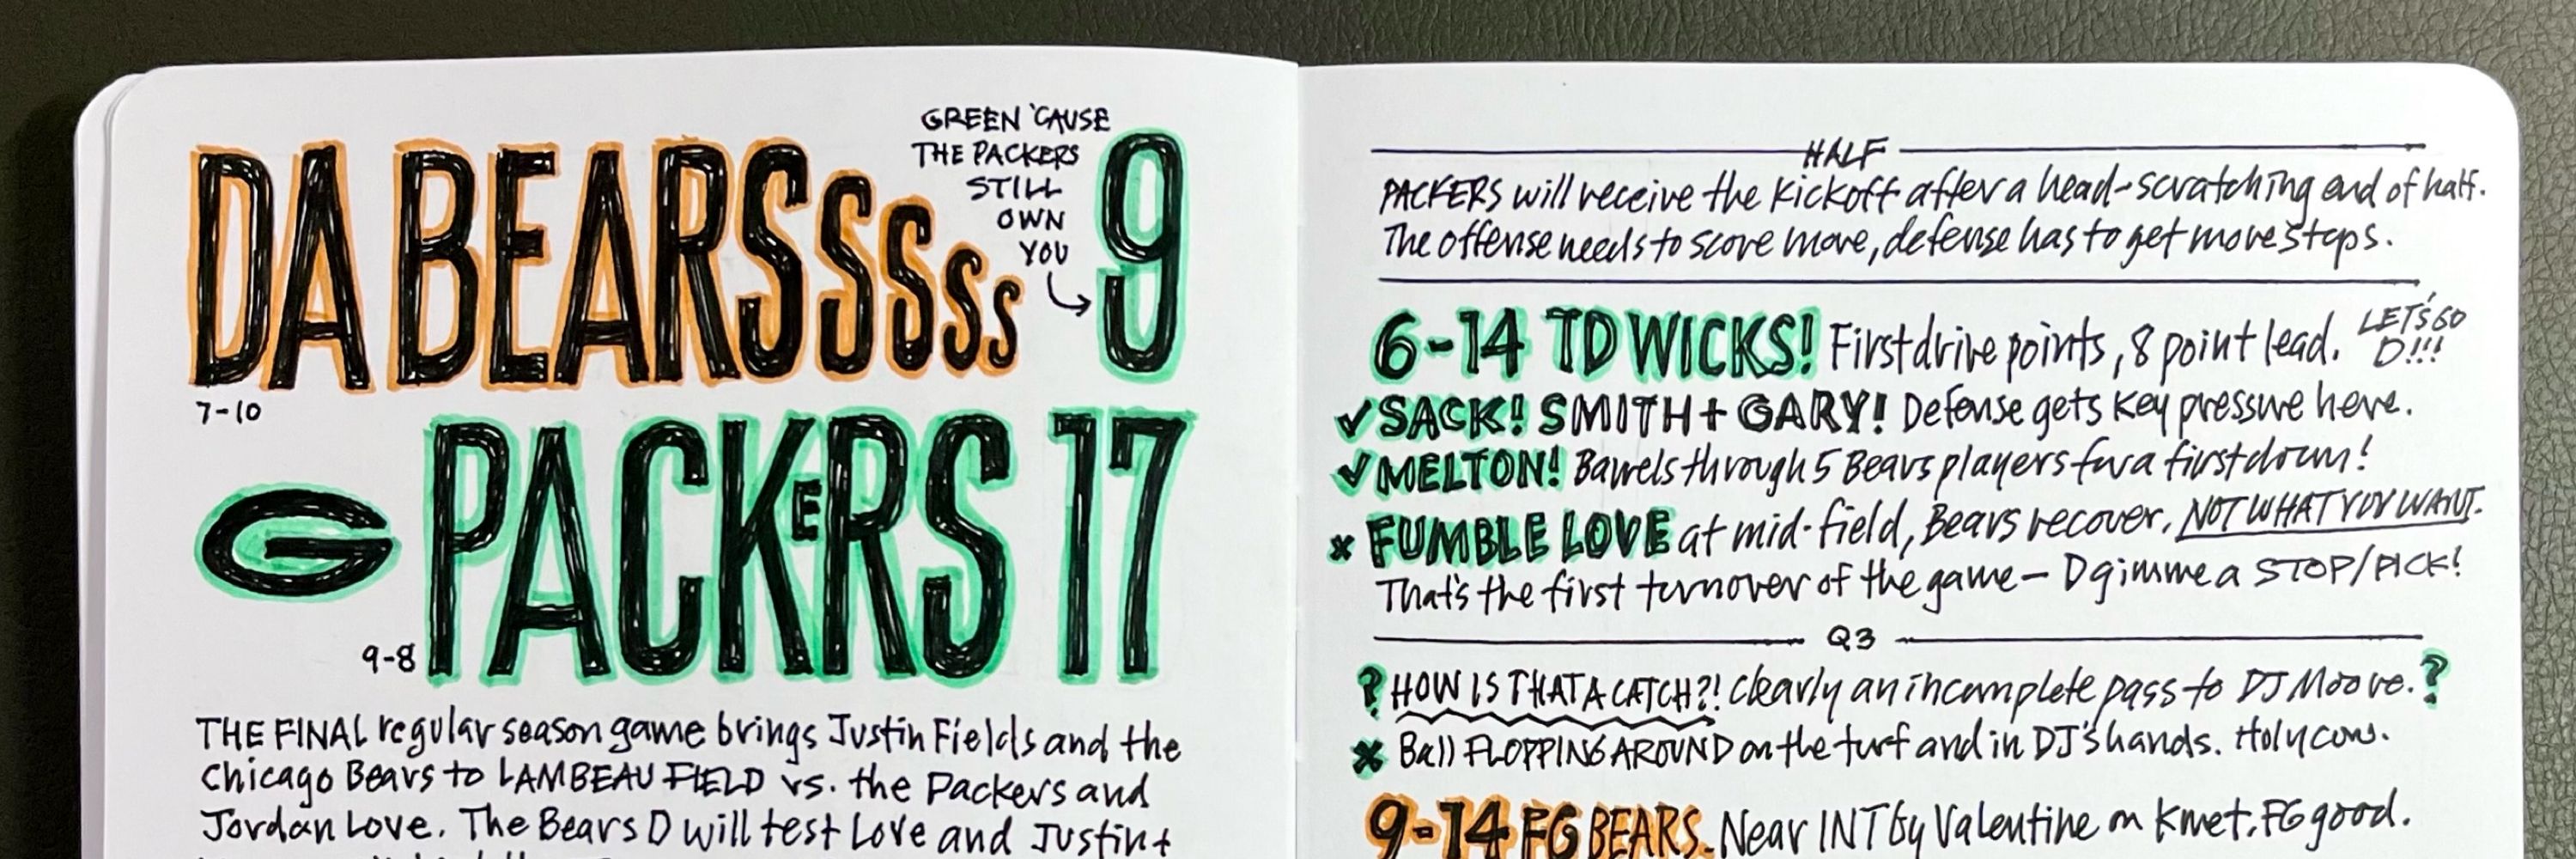 GREEN 'CAUSE
THE PACKERS
STILL
OWN
YOU
DA BEARSSSSSS 9
7-10
G PACKERS 17
9-8
THE FINAL regular season game brings Justin Fields and the
Chicago Bears to LAMBEAU FIELD vs. the Packers and
Jordan Love. The Bears D will test Love and Justin +
HALF
PACKERS will receive the kickoff after a head-scratching end of half.
The offense needs to score more, defense has to get more stops.
6-14 TD WICKS! First drive points, 8 point lead. LET'S GO
D!!!
✓ SACK! SMITH + GARY! Defense gets key pressure here.
✓ MELTON! Barrels through 5 Bears players for a first down!
x FUMBLE LOVE at mid-field, Bears recover. NOT WHAT YOU WANT.
That's the first turnover of the game – D gimme a STOP/PICK!
Q3
? HOW IS THAT A CATCH?! Clearly an incomplete pass to DJ Moore. ?
x Ball FLOPPING AROUND on the turf and in DJ's hands. Holy cow.
9-14 FG BEARS. Near INT by Valentine on Kmet. FG good.